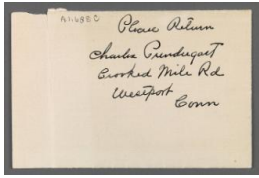 A1.698C
Please Return
Charles Prendergast
Crooked Mile Rd
Westport
Conn